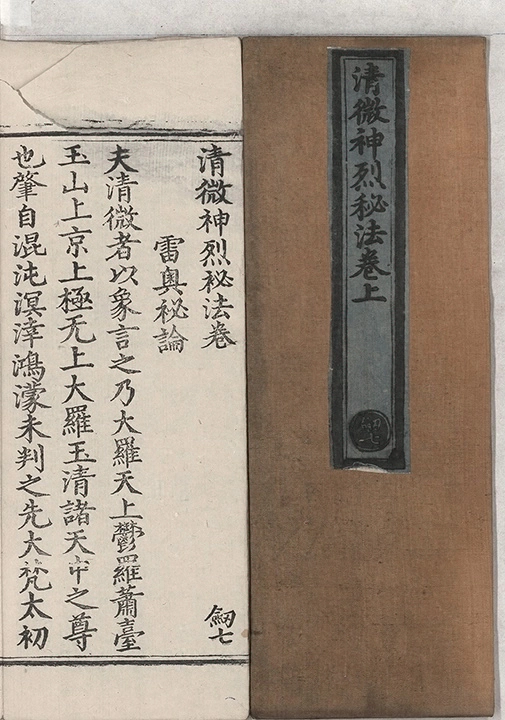 清微神烈秘法卷上
清微神烈祕法卷
劒七
雷奥祕論
夫清微者以象言之乃大羅天上鬱羅蕭臺
玉山上京上極无上大羅玉清諸天中之尊
也肇自混沌溟涬鴻濛未判之先大梵太初